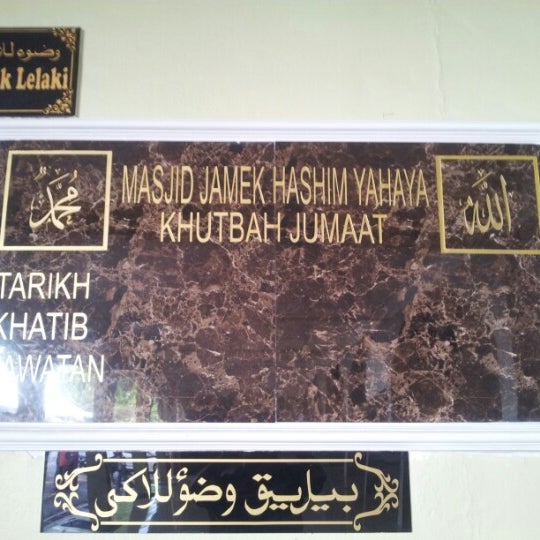 وضوء للا
k Lelaki
محمد
MASJID JAMEK HASHIM YAHAYA
الله
KHUTBAH JUMAAT
TARIKH
KHATIB
AWATAN
بيليق وضؤ للاكى